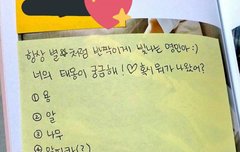 항상 별☆처럼 반짝이게 빛나는 명민아 :)
너의 태몽이 궁금해! ♡ 혹시 뭐가 나왔어?
① 용
② 알
③ 나무